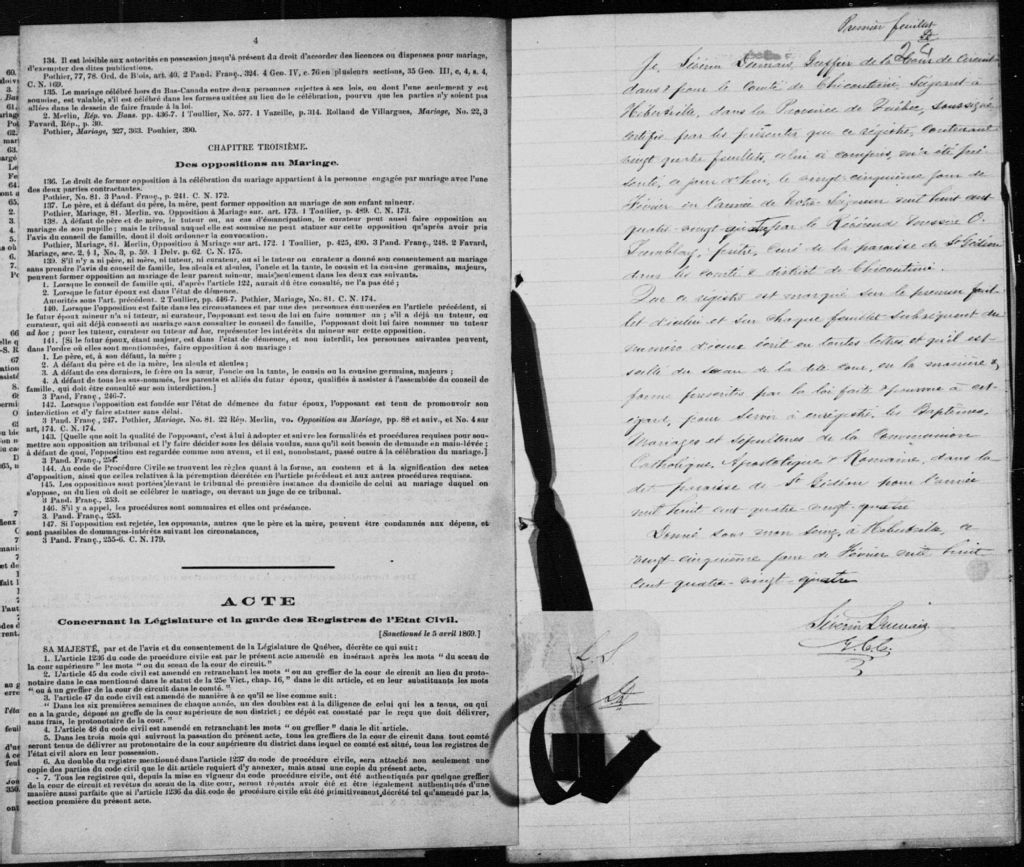 4
134. Il est loisible aux autorités en possession jusqu'à présent du droit d'accorder des licences ou dispenses pour mariage,
d'exempter des dites publications.
Pothier, 77, 78. Ord. de Blois, art. 40. 2 Pand. Franç., 324. 4 Geo. IV, c. 76 en plusieurs sections, 35 Geo. III, c, 4, s. 4,
C. N. 169.
135. Le mariage célébré hors du Bas-Canada entre deux personnes sujettes à ses lois, ou dont l'une seulement y est
soumise, est valable, s'il est célébré dans les formes usitées au lieu de la célébration, pourvu que les parties n'y soient pas
allées dans le dessein de faire fraude à la loi.
2. Merlin, Rép. vo. Bans. pp. 436-7. 1 Toullier, No. 577. 1 Vazeille, p. 314. Rolland de Villargues, Mariage, No. 22, 3
Favard, Rép., p. 30.
Pothier, Mariage, 327, 363. Ponhier, 390.
CHAPITRE TROISIÈME.
Des oppositions au Mariage.
136. Le droit de former opposition à la célébration du mariage appartient à la personne engagée par mariage avec l'une
des deux parties contractantes.
Pothier, No. 81. 3 Pand. Franç., p. 241. C. N. 172.
137. Le père, et à défaut du père, la mère, peut former opposition au mariage de son enfant mineur.
Pothier, Mariage, 81. Merlin. vo. Opposition à Mariage sur. art. 173. 1 Toullier, p. 489. C. N. 173.
138. A défaut de père et de mère, le tuteur ou, au cas d'émancipation, le curateur peut aussi faire opposition au
mariage de son pupille; mais le tribunal auquel elle est soumise ne peut statuer sur cette opposition qu'après avoir pris
l'avis du conseil de famille, dont il doit ordonner la convocation.
Pothier, Mariage, 81. Merlin, Opposition à Mariage sur art. 172. 1 Toullier, p. 425, 490. 3 Pand. Franç., 248. 2 Favard,
Mariage, sec. 2, § 1, No. 3, p. 59. 1 Delv. p. 62. C. N. 175.
139. S'il n'y a ni père, ni mère, ni tuteur, ni curateur, ou si le tuteur ou curateur a donné son consentement au mariage
sans prendre l'avis du conseil de famille, les aïeuls et aïeules, l'oncle et la tante, le cousin et la cousine germains, majeurs,
peuvent former opposition au mariage de leur parent mineur, mais seulement dans les deux cas suivants.
1. Lorsque le conseil de famille qui, d'après l'article 122, aurait dû être consulté, ne l'a pas été;
2. Lorsque le futur époux est dans l'état de démence.
Autorités sous l'art. précédent. 2 Toullier, pp. 446-7. Pothier, Mariage, No. 81. C. N. 174.
140. Lorsque l'opposition est faite dans les circonstances et par une des personnes énoncées en l'article précédent, si
le futur époux mineur n'a ni tuteur, ni curateur, l'opposant est tenu de lui en faire nommer un; s'il a déjà un tuteur, ou
curateur, qui ait déjà consenti au mariage sans consulter le conseil de famille, l'opposant doit lui faire nommer un tuteur
ad hoc; pour les tuteur, curateur ou tuteur ad hoc, représenter les intérêts du mineur sur cette opposition.
141. [Si le futur époux, étant majeur, est dans l'état de démence, et non interdit, les personnes suivantes peuvent,
dans l'ordre où elles sont mentionnées, faire opposition à son mariage:
1. Le père, et, à son défaut, la mère;
2. A défaut du père et de la mère, les aïeuls et aïeules;
3. A défaut de ces derniers, le frère ou la sœur, l'oncle ou la tante, le cousin ou la cousine germains, majeurs;
4. A défaut de tous les sus-nommés, les parents et alliés du futur époux, qualifiés à assister à l'assemblée du conseil de
famille, qui doit être consulté sur son interdiction.]
3 Pand. Franç., 246-7.
142. Lorsque l'opposition est fondée sur l'état de démence du futur époux, l'opposant est tenu de promouvoir son
interdiction et d'y faire statuer sans délai.
3 Pand. Franç., 247. Pothier, Mariage. No. 81. 22 Rép. Merlin, vo. Opposition au Mariage, pp. 88 et suiv., et No. 4 sur
art, 174. C. N. 174.
143. [Quelle que soit la qualité de l'opposant, c'est à lui à adopter et suivre les formalités et procédures requises pour sou-
mettre son opposition au tribunal et l'y faire décider sous les délais voulus, sans qu'il soit besoin de demande en main-levée;
à défaut de quoi, l'opposition est regardée comme non avenu, et il est, nonobstant, passé outre à la célébration du mariage.]
3 Pand. Franç., 251.
144. Au code de Procédure Civile se trouvent les règles quant à la forme, au contenu et à la signification des actes
d'opposition, ainsi que celles relatives à la péremption décrétée en l'article précédent et aux autres procédures requises.
145. Les oppositions sont portées devant le tribunal de première instance du domicile de celui au mariage duquel on
s'oppose, ou du lieu où doit se célébrer le mariage, ou devant un juge de ce tribunal.
3 Pand. Franç., 253.
146. S'il y a appel, les procédures sont sommaires et elles ont préséance.
3. Pand. Franç., 253.
147. Si l'opposition est rejetée, les opposants, autres que le père et la mère, peuvent être condamnés aux dépens, et
sont passibles de dommages-intérêts suivant les circonstances,
3 Pand. Franç., 255-6. C. N. 179.
ACTE
Concernant la Législature et la garde des Registres de l'Etat Civil.
[Sanctionné le 5 avril 1869.]
SA MAJESTÉ, par et de l'avis et du consentement de la Législature de Québec, décrète ce qui suit:
1. L'article 1236 du code de procédure civile est par le présent acte amendé en insérant après les mots "du sceau de
la cour supérieure" les mots "ou du sceau de la cour de circuit."
2. L'article 45 du code civil est amendé en retranchant les mots "ou au greffier de la cour de circuit au lieu du proto-
notaire dans le cas mentionné dans le statut de la 25e Vict., chap. 16," dans le dit article, et en leur substituants les mots
"ou à un greffier de la cour de circuit dans le comté."
3. l'article 47 du code civil est amendé de manière à ce qu'il se lise comme suit:
"Dans les six premières semaines de chaque année, un des doubles est à la diligence de celui qui les a tenus, ou qui
en a la garde, déposé au greffe de la cour supérieure de son district; ce dépôt est constaté par le reçu que doit délivrer,
sans frais, le protonotaire de la cour."
4. L'article 48 du code civil est amendé en retranchant les mots "ou greffier" dans le dit article.
5. Dans les trois mois qui suivront la passation du présent acte, tous les greffiers de la cour de circuit dans tout comté
seront tenus de délivrer au protonotaire de la cour supérieure du district dans lequel ce comté est situé, tous les registres de
l'état civil alors en leur possession.
6. Au double du registre mentionné dans l'article 1237 du code de procédure civile, sera attaché non seulement une
copie des parties du code civil que le dit article requiert d'y annexer, mais aussi une copie du présent acte.
7. Tous les registres qui, depuis la mise en vigueur du code procédure civile, ont été authentiqués par quelque greffier
de la cour de circuit et revêtus du sceau de la dite cour, seront réputés avoir été et être légalement authentiqués d'une
manière aussi parfaite que si l'article 1236 du dit code de procédure civile eût été primitivement décrété tel qu'amendé par la
section première du présent acte.
Premier feuillet
Je, Séverin Dumais, Greffier de la Cour de Circuit
dans & pour le Comté de Chicoutimi, Siégeant à
Hébertville, dans la Province de Québec, soussigné
certifie par les présentes que ce régistre, contenant
vingt quatre feuillets, celui ci compris, m'a été pré-
senté, ce jour d'hui, le vingt-cinquième jour de
Février en l'année de Notre Seigneur mil huit cent
quatre-vingt-quatre par le Révérend Messire O.
Tremblay, prêtre, curé de la paroisse de St Gédéon
dans les comté & district de Chicoutimi.
Que ce régistre est marqué sur le premier feuil-
let d'icelui et sur chaque feuillet subséquent du
numéro d'iceux écrit en toutes lettres et qu'il est
scellé du sceau de la dite cour, en la manière &
forme prescrites par la loi faite & pourvue à cet
égard, pour servir à enrégistré, les Baptêmes,
Mariages et Sépultures de la Communion
Catholique, Apostolique & Romaine, dans la
dite paroisse de St Gédéon pour l'année
mil huit cent quatre-vingt-quatre
Donné sous mon seing, à Hébertville, ce
vingt-cinquième jour de Février mil huit
cent quatre-vingt-quatre
Séverin Dumais
G.C.C.
L. S